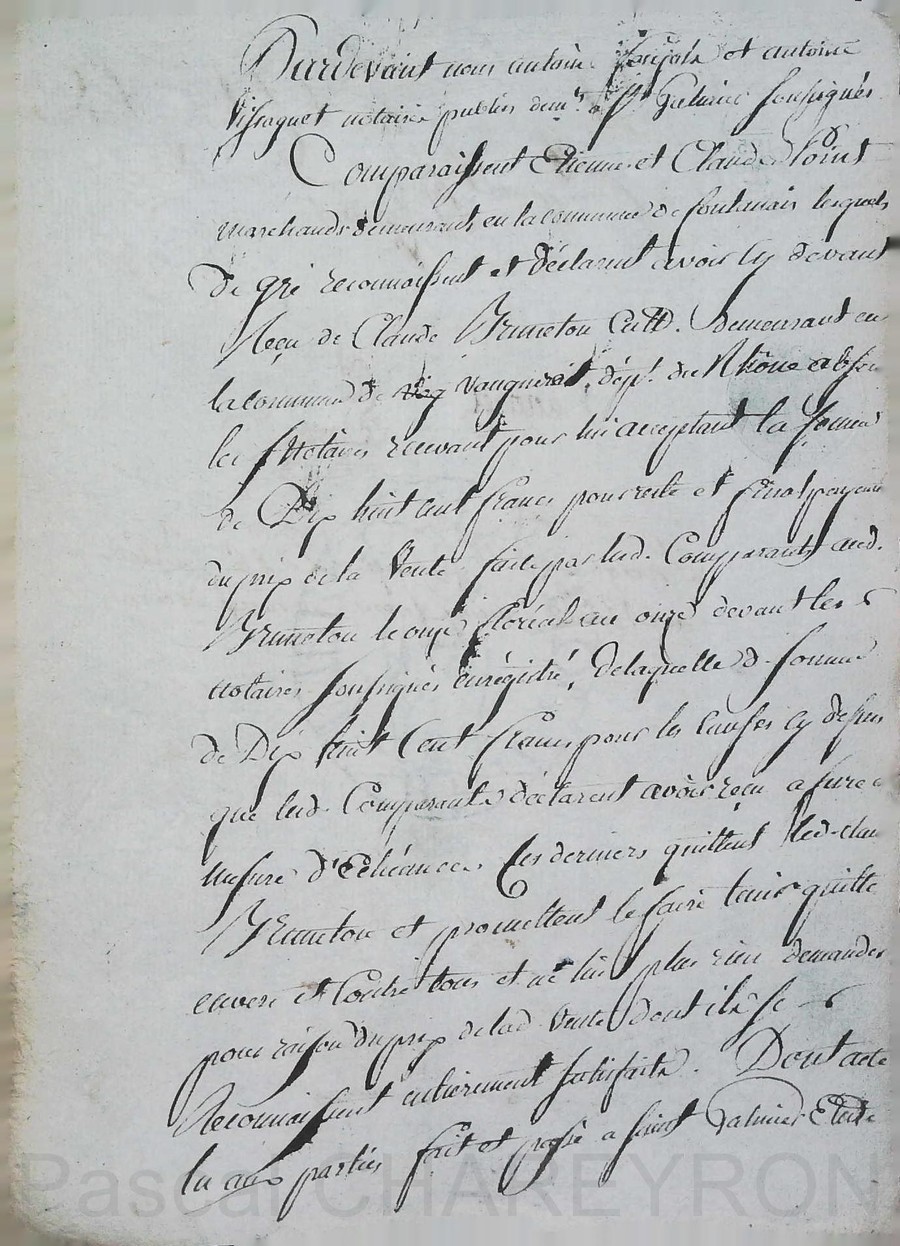 Pardevant nous antoine et antoine
Vissaguet notaires publics dem.t à St Galmier soussignés
Comparaissent Etienne et Claude Point
marchands demeurants en la commune de fontanais lesquels
de gré reconnoissent et déclarent avoir cy devant
Reçu de Claude Bruneton Cult. demeurant en
la commune de Vaugneray, dépt. du Rhône absen
les Notaires recevant pour lui acceptant la somme
de Dix huit cent francs pour reste et final payem
du prix de la Vente faite par lesd. Comparants aud.
Bruneton le onze floréal an onze devant les
Notaires soussignés enrégistré, de laquelle d. somme
de Dix huit Cent francs pour les causes cy dessus
que lesd. Comparants déclarent avoir reçu a fure e
mesure d'Echéance. Ces derniers quittent led. Clau
Bruneton et promettent le faire tenir quitte
envers et Contre tous et ne lui plus rien demander
pour raison du prix de lad. Vente dont ils se
Reconnaissent entierement satisfaits. Dont acte
lu aux parties fait et passé a saint Galmier Etude
Pascal CHAREYRON